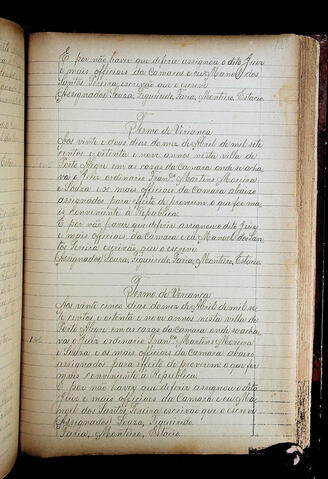 E por não haver que deferir assignou o dito Juiz
e mais officiaes da Camara e eu Manoel dos
Santos Pereira escrivão que o escrevi
(Assignados) Souza, Figueiredo, Faria, Monteiro, Estacio.
Termo de Viriança
Aos vinte e dous dias do mez de Abril de mil sete
centos e oitenta e nove annos nesta villa de
Porto Alegre em as cazas da Camara onde se acha
va o Juiz ordinario Franco Martins Moreira
e Souza e os mais officiaes da Camara abaixo
assignados para effeito de proverem o que for ma
is conveniente a Republica.
E por não haver que deferir assignou o dito Juiz
e mais officiaes da Camara e eu Manoel dos San
tos Pereira escrivão, que o escrevi
(Assignados) Souza, Figueiredo, Faria, Monteiro, Estacio.
Termo de Viriança
Aos vinte cinco dias do mez de Abril de mil se
te centos e oitenta e nove annos nesta villa de
Porto Alegre em as cazas da Camara onde se acha
va o Juiz ordinario Franco Martins Moreira
e Souza e os mais officiaes da Camara abaixo
assignados para effeito de proverem o que for
mais conveniente a Republica.
E por não haver que deferir assignou o dito
Juiz e mais officiaes da Camara e eu Ma
noel dos Santos Pereira escrivão que o escrevi
(Assignados) Souza, Figueiredo
Faria, Monteiro, Estacio.